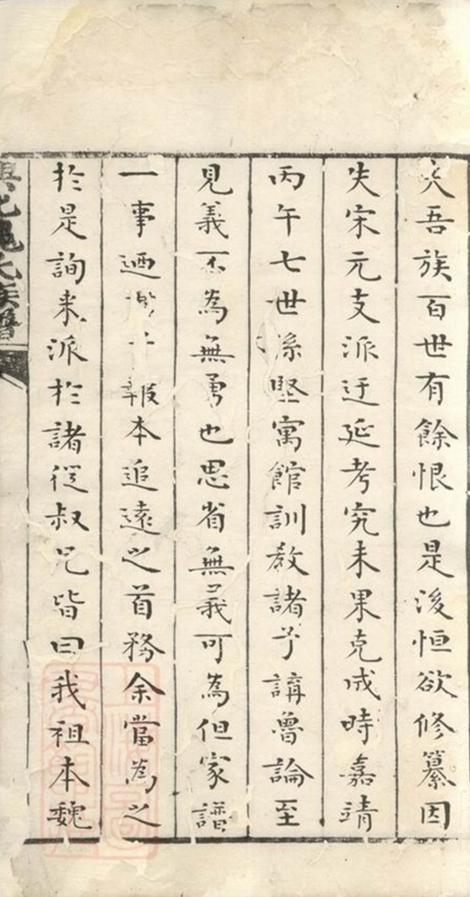 吾族百世有餘恨也是後恒欲修纂因
失宋元支派迂延考究未果克成時嘉靖
丙午七世孫堅寓館訓教諸子講魯論至
見義不為無勇也思省無義可為但家譜
一事迺報本追遠之首務余當為之
於是詢來派於諸從叔兄皆曰我祖本魏
魏氏族譜